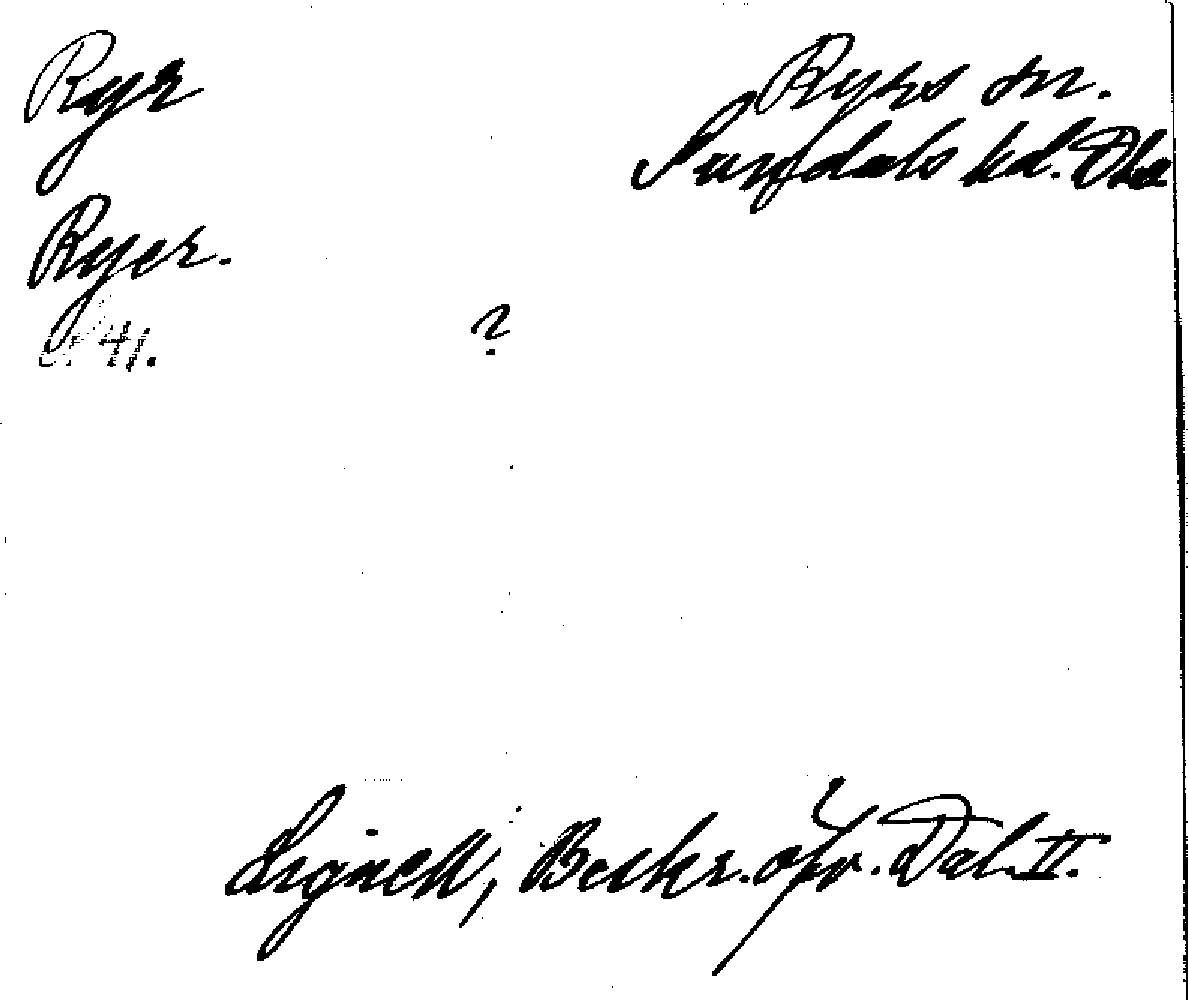 Ryr
Ryrs sn.
Sundals hd. Dls
Ryer.
s. 41.
?
Lignell, Beskr. öfv. Dal. II.